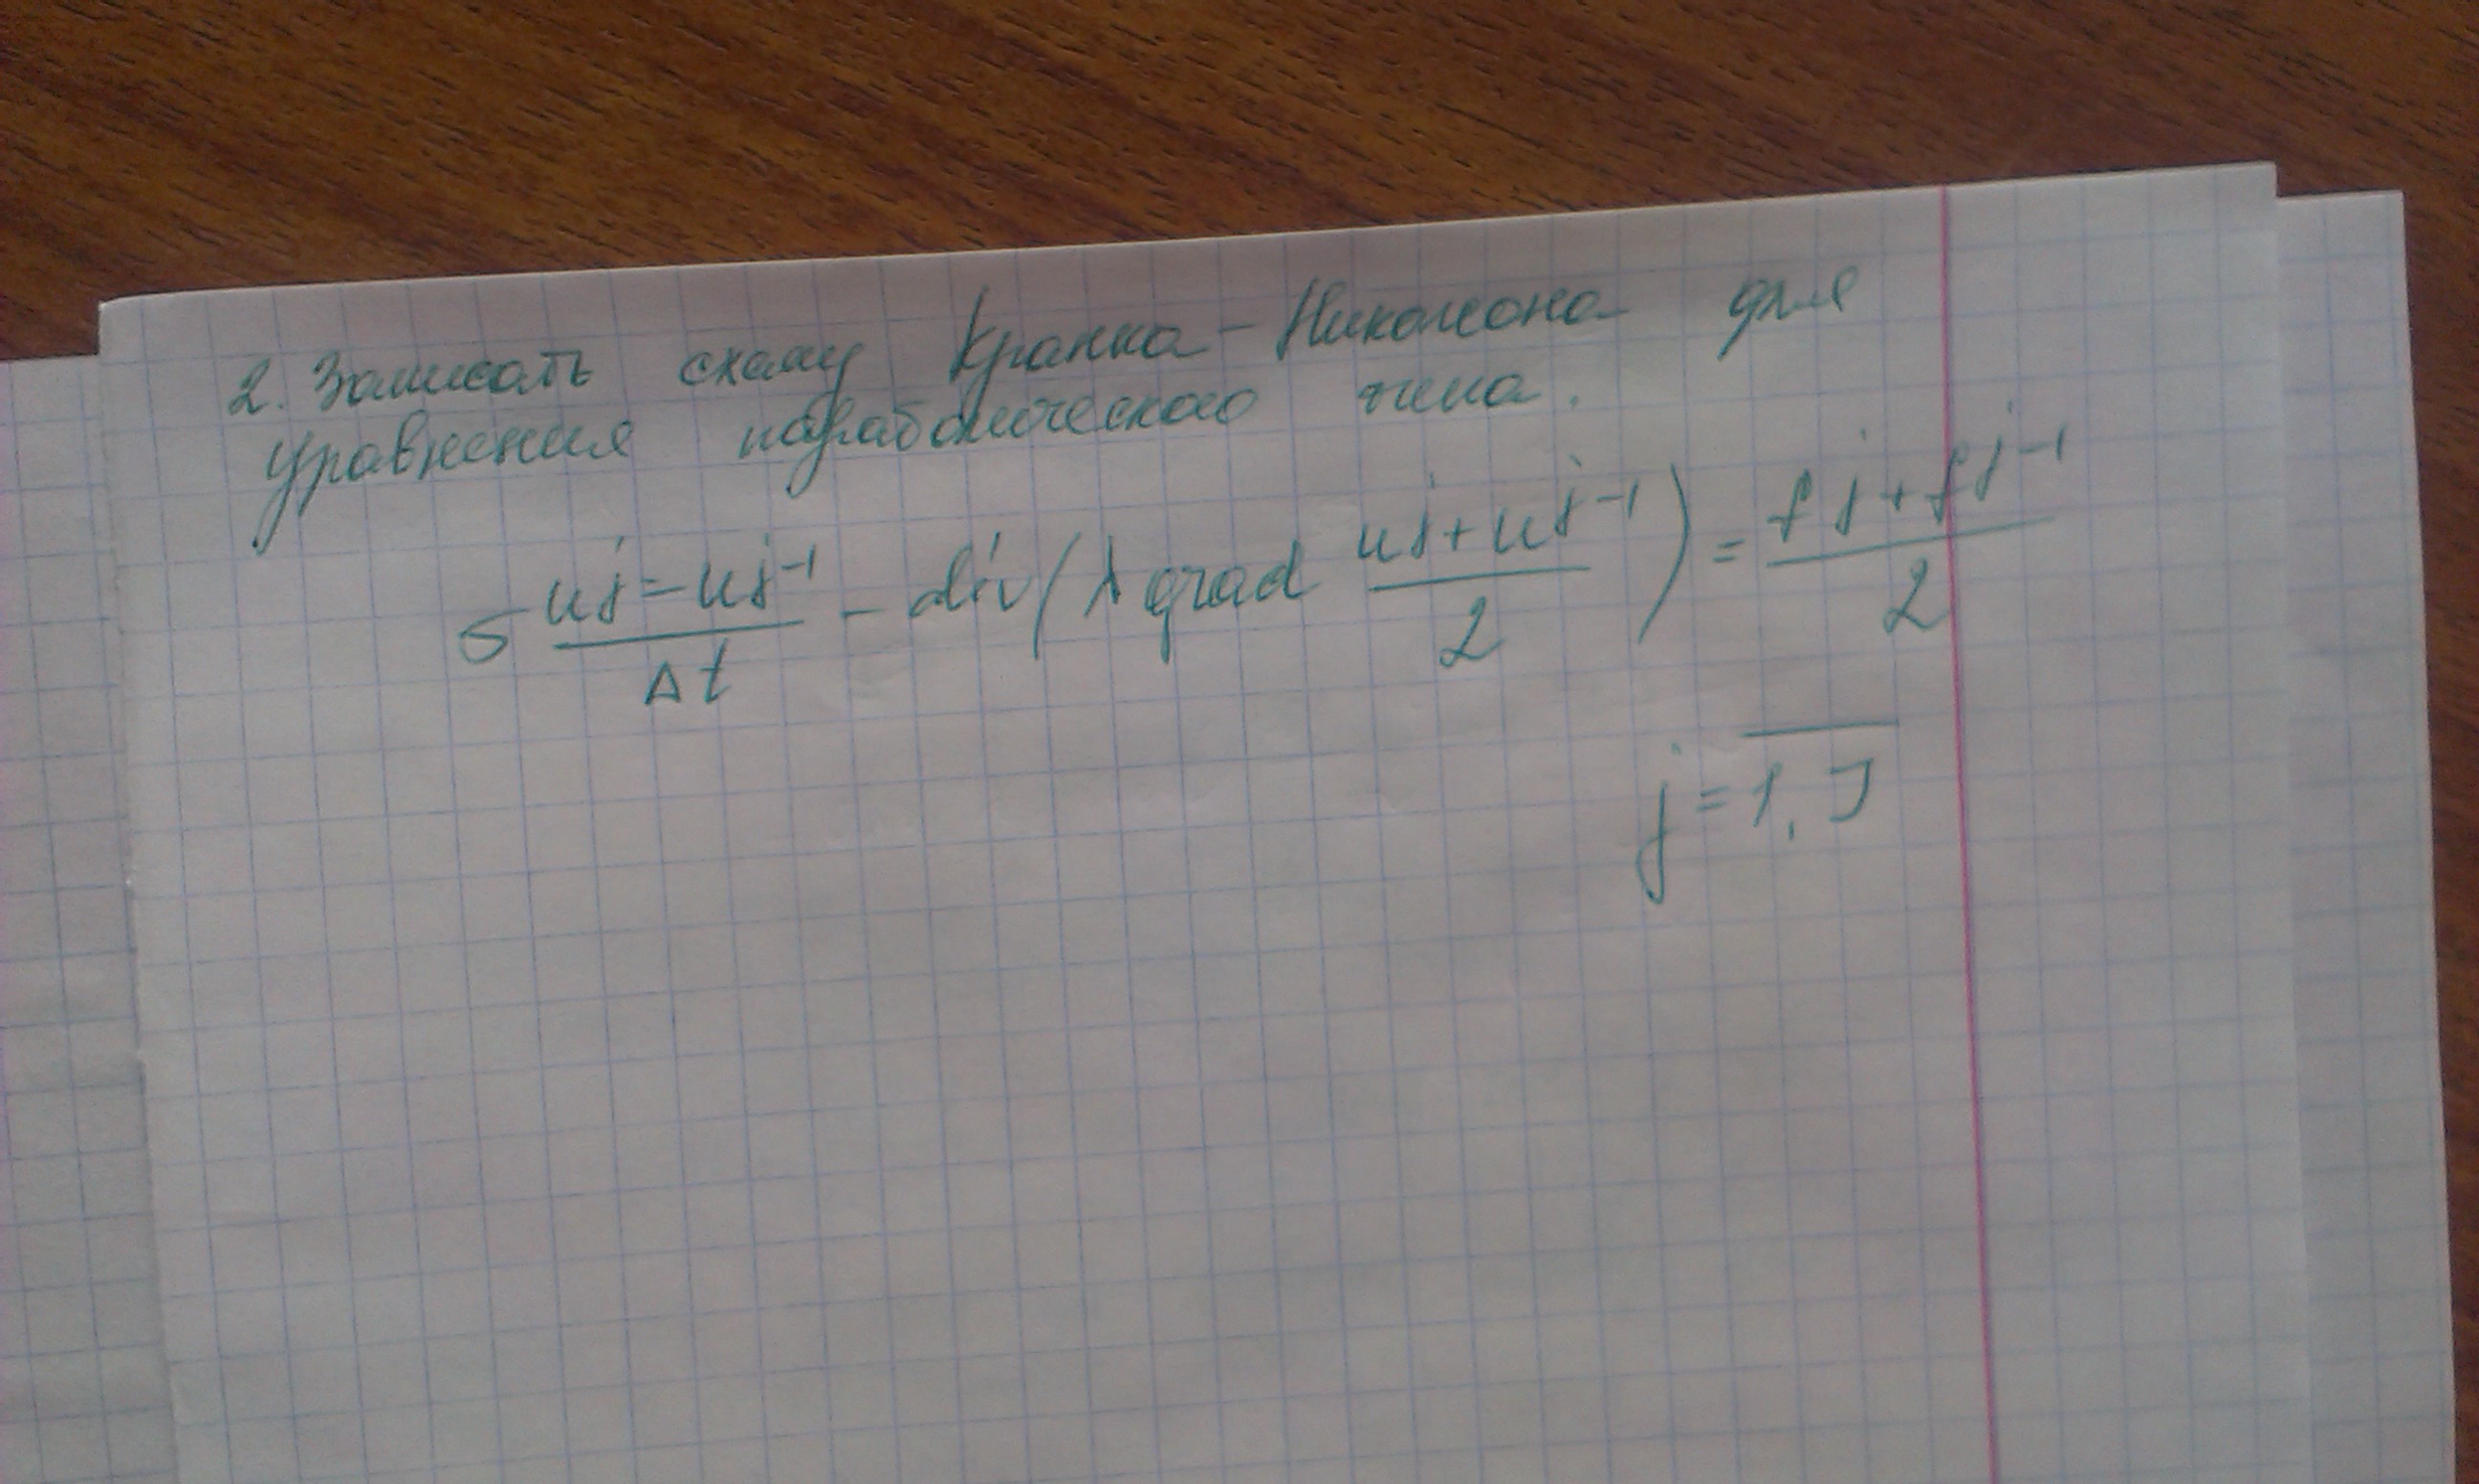 2. Записать схему Кранка-Николсона для
уравнения параболического типа.
σ (uj - uj-1)/Δt - div(λ grad (uj + uj-1)/2) = (fj + fj-1)/2
j = 1, J